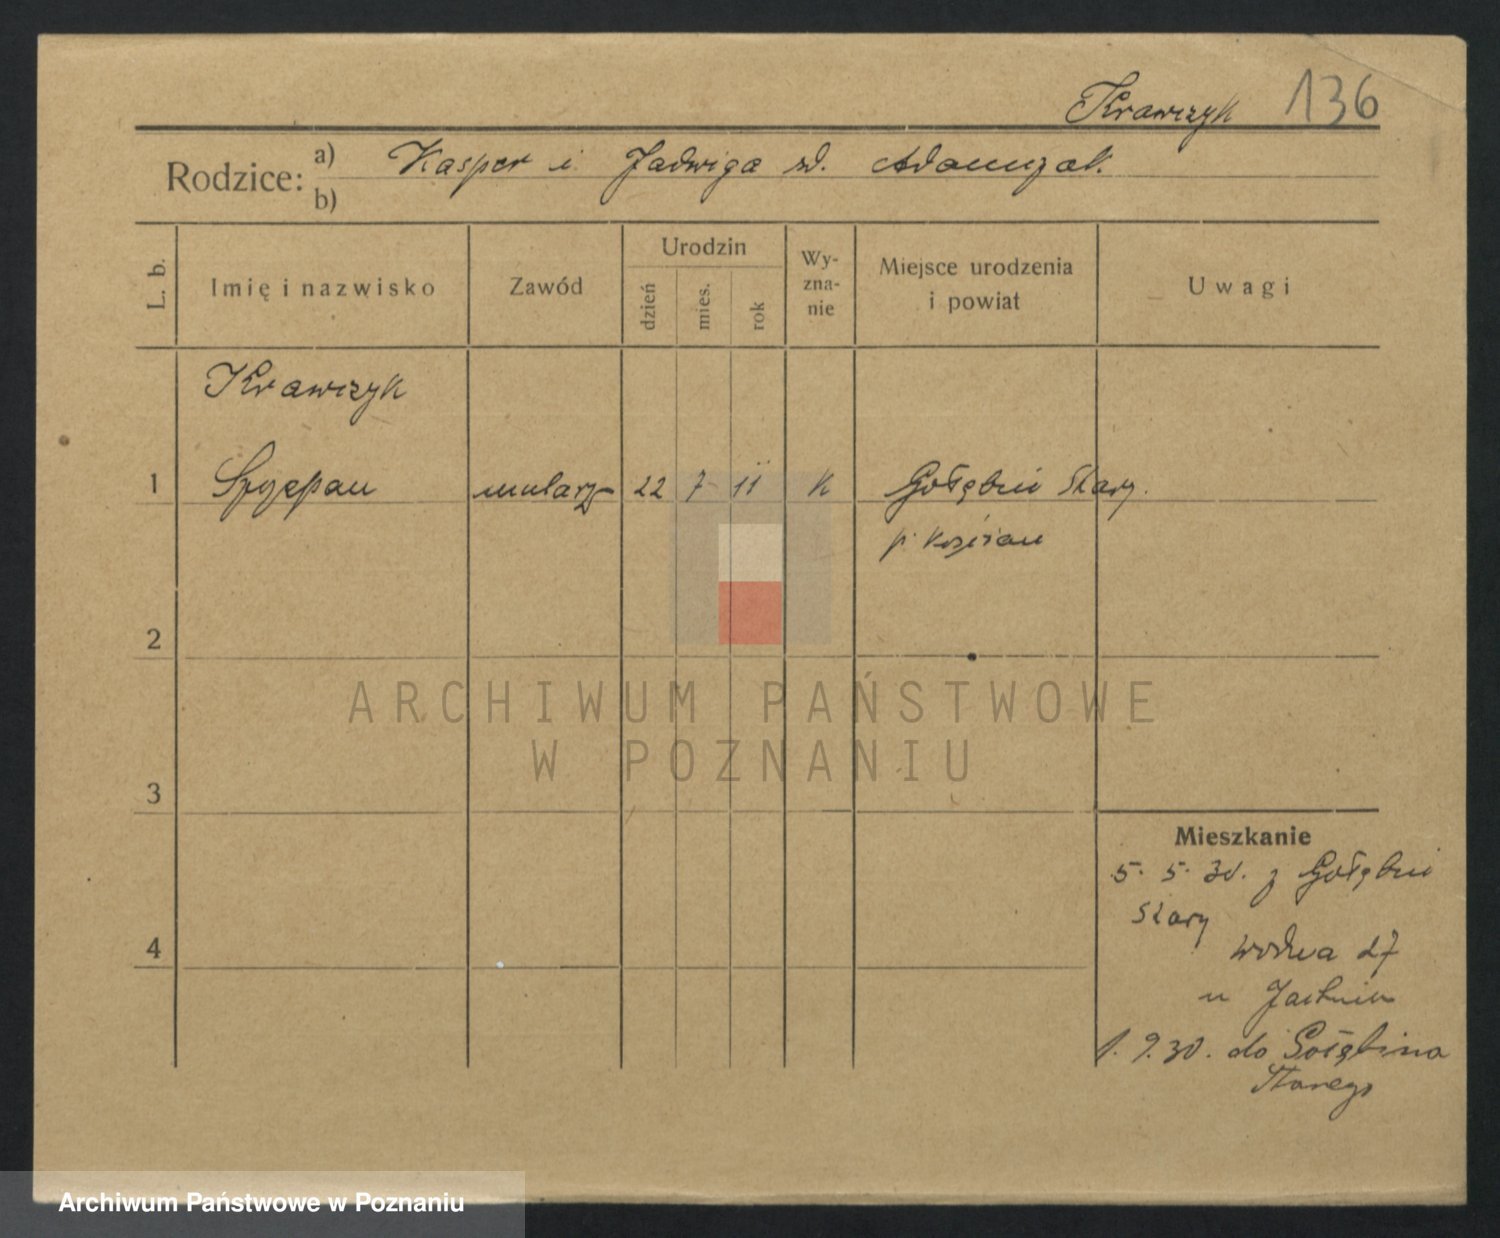 Krawczyk 136
Rodzice: a) Kasper i Jadwiga zd. Adamczak.
b)
L. b. Imię i nazwisko Zawód Urodzin dzień mies. rok Wy-zna-nie Miejsce urodzenia i powiat Uwagi
Krawczyk
1 Szczepan mularz 22 7 11 K Gołębin Stary.
p. Kościan
2
ARCHIWUM PAŃSTWOWE
W POZNANIU
3
Mieszkanie
5. 5. 30. z Gołębin
Stary
4
Wodna 27
u
1. 9. 30. do Gołębina
Starego
Archiwum Państwowe w Poznaniu